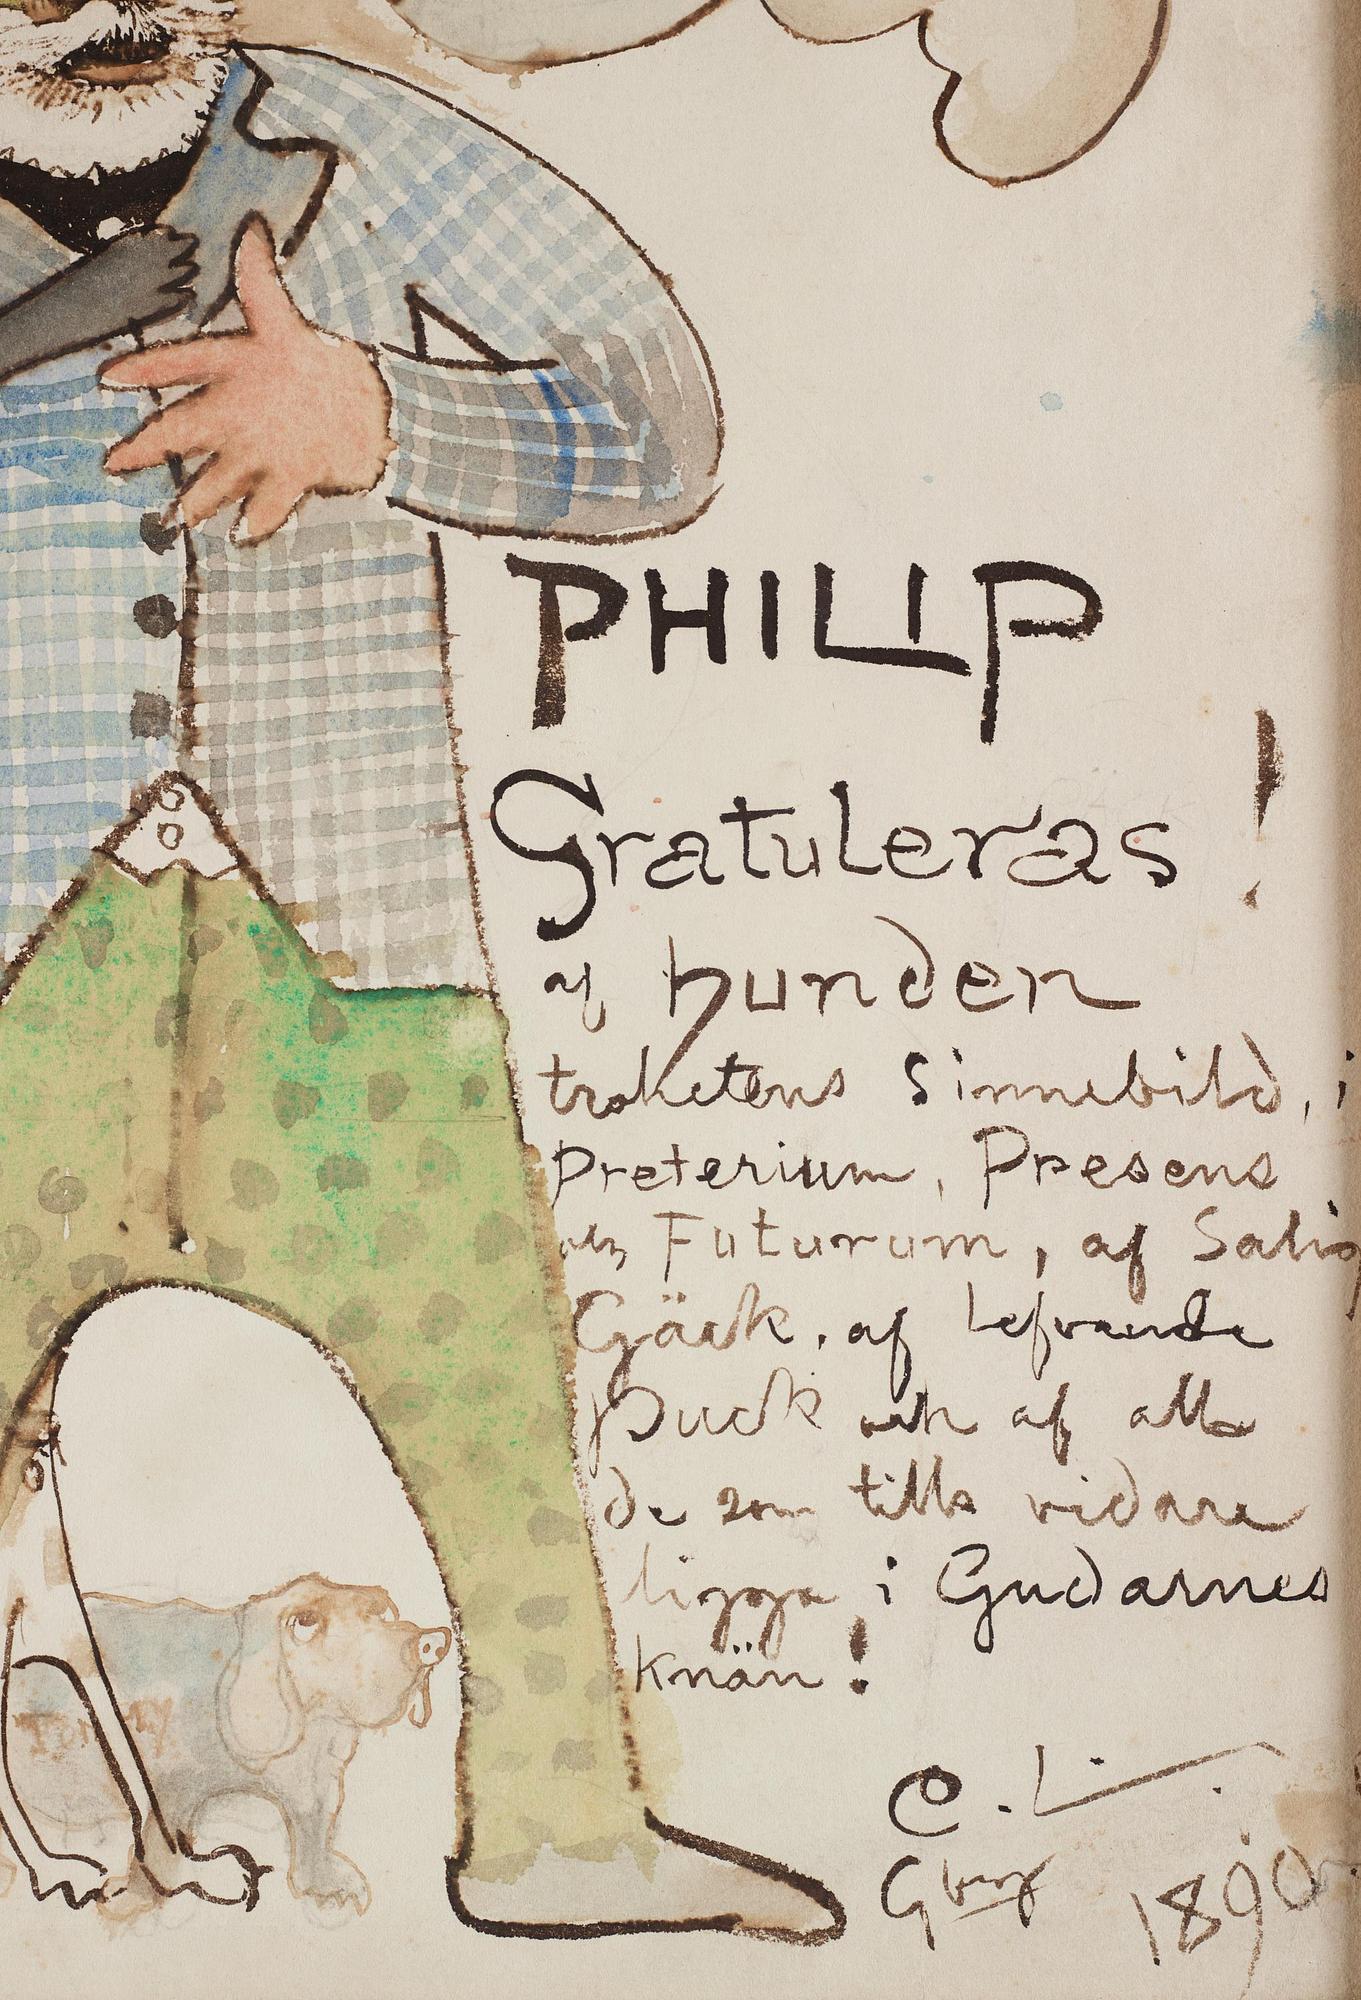 PHILIP
Gratuleras!
af hunden
trohetens Sinnebild, i
Preterium, Presens
och Futurum, af Salig
Gäck, af lefvande
Puck och af alla
de som tills vidare
ligga i Gudarnes
knän!
Tommy
C. L.
Gborg 1890